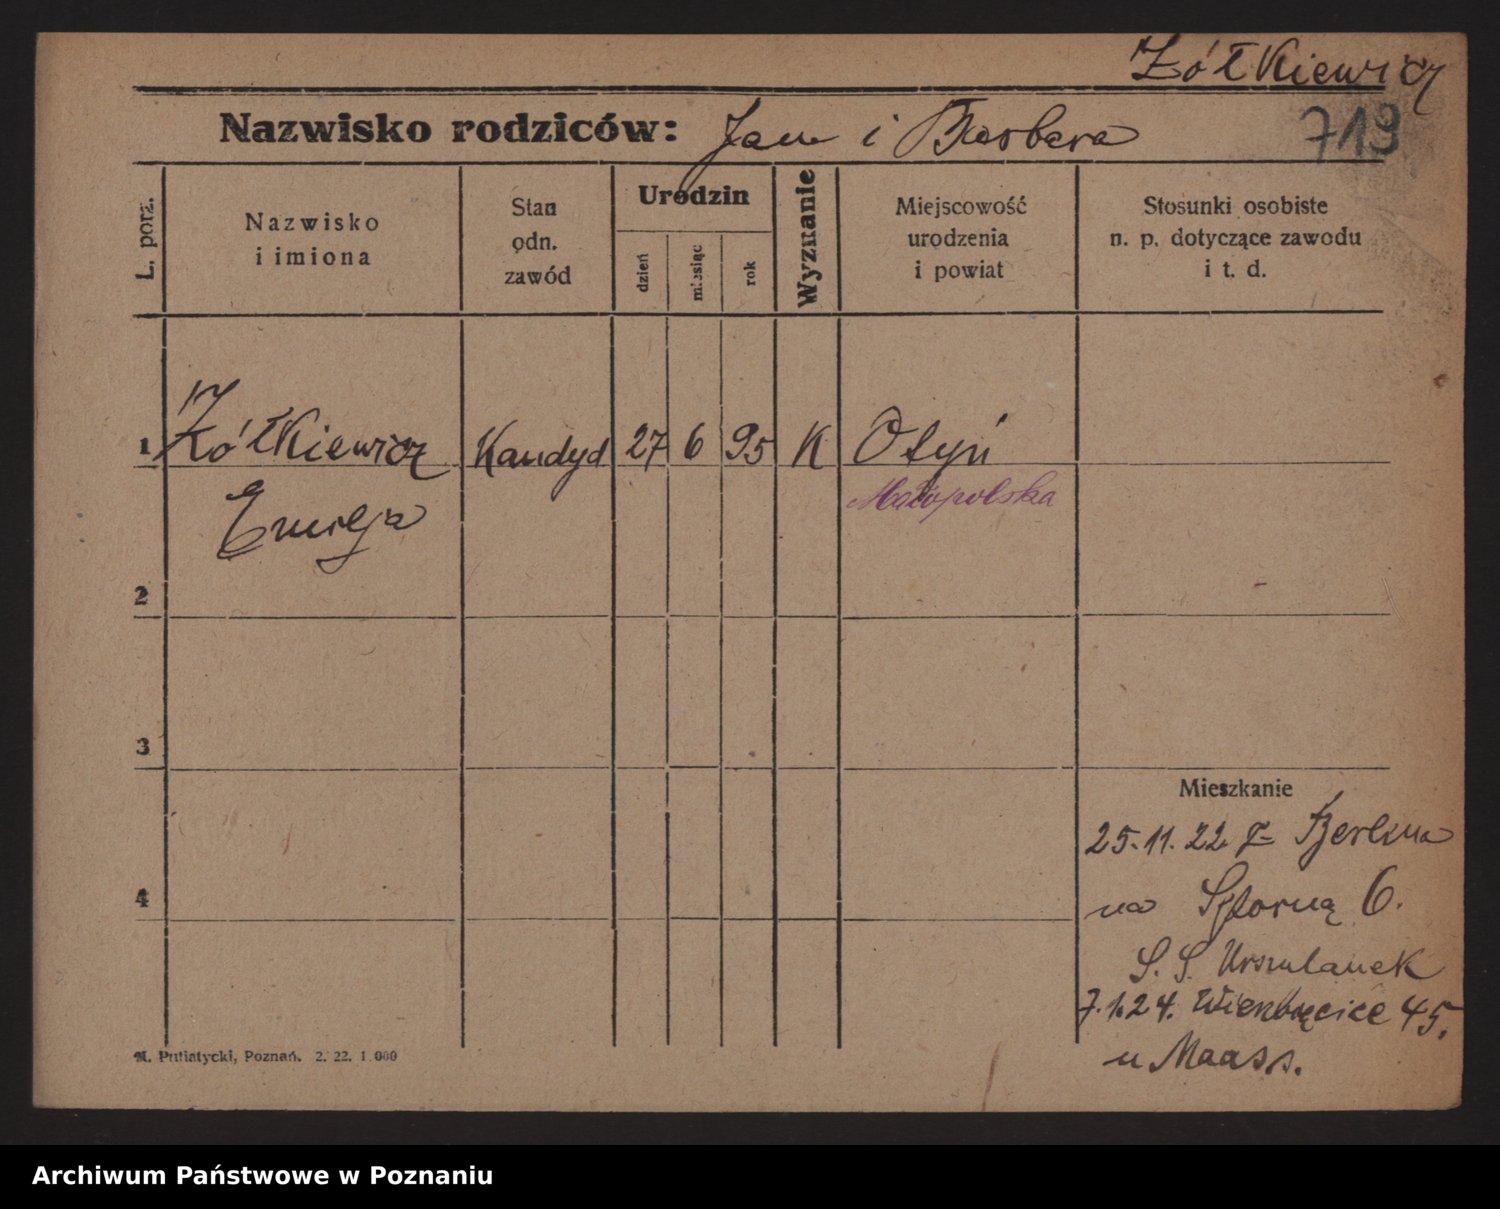 Żółkiewicz
Nazwisko rodziców: Jan i Barbara
719
L. porz.
Nazwisko
i imiona
Stan
odn.
zawód
Urodzin
dzień
miesiąc
rok
Wyznanie
Miejscowość
urodzenia
i powiat
Stosunki osobiste
n. p. dotyczące zawodu
i t. d.
1 Żółkiewicz Kandyd 27 6 95 K Otyń
Małopolska
Emilja
2
3
4
Mieszkanie
25.11.22 z
na 6.
S. S. Urszulanek
7.1.24. Wierzbięcice 45.
u Maass.
M. Putiatycki, Poznań. 2. 22. 1.000
Archiwum Państwowe w Poznaniu